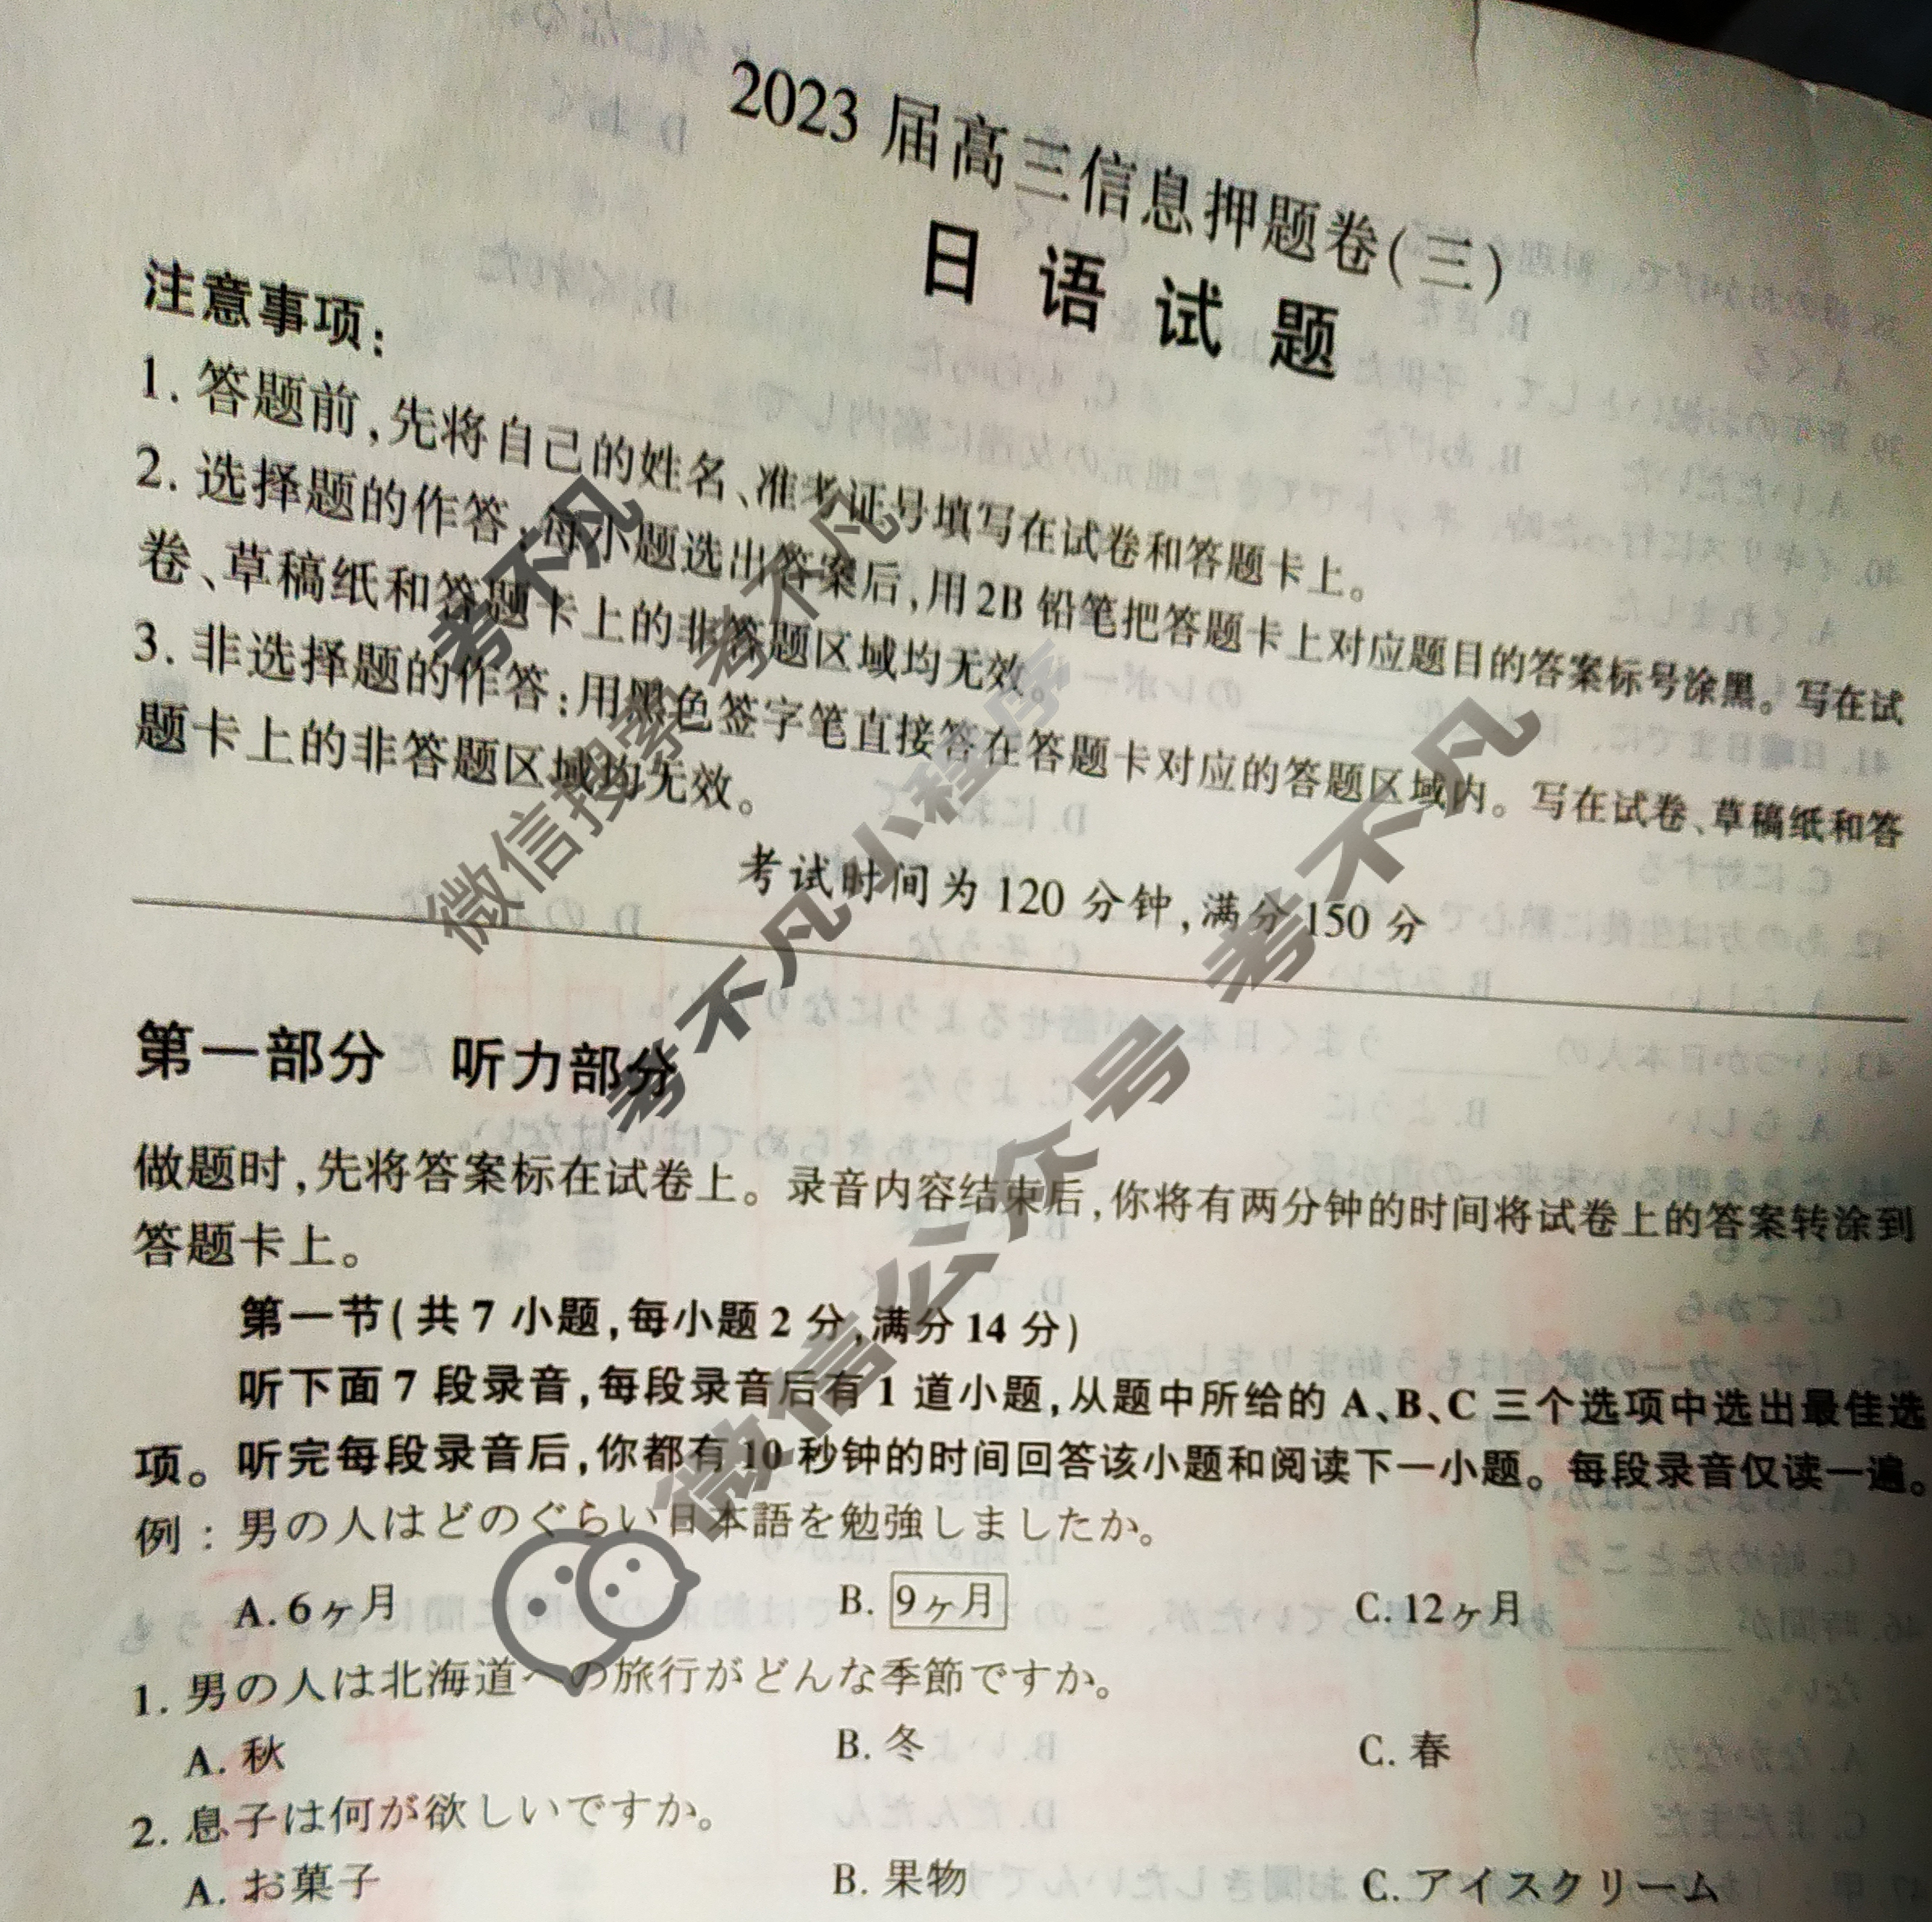 2023 届高三信息押题卷(三)
日 语 试 题
注意事项:
1. 答题前,先将自己的姓名、准考证号填写在试卷和答题卡上。
2. 选择题的作答:每小题选出答案后,用2B铅笔把答题卡上对应题目的答案标号涂黑。写在试
卷、草稿纸和答题卡上的非答题区域均无效。
3. 非选择题的作答:用黑色签字笔直接答在答题卡对应的答题区域内。写在试卷、草稿纸和答
题卡上的非答题区域均无效。
考试时间为 120 分钟,满分 150 分
第一部分 听力部分
做题时,先将答案标在试卷上。录音内容结束后,你将有两分钟的时间将试卷上的答案转涂到
答题卡上。
第一节(共 7 小题,每小题 2 分,满分 14 分)
听下面 7 段录音,每段录音后有 1 道小题,从题中所给的 A、B、C 三个选项中选出最佳选
项。听完每段录音后,你都有 10 秒钟的时间回答该小题和阅读下一小题。每段录音仅读一遍。
例:男の人はどのぐらい日本語を勉強しましたか。
A. 6ヶ月 B. 9ヶ月 C. 12ヶ月
1. 男の人は北海道への旅行がどんな季節ですか。
A. 秋 B. 冬 C. 春
2. 息子は何が欲しいですか。
A. お菓子 B. 果物 C. アイスクリーム
考不凡
考不凡
微信搜索
考不凡小程序
考不凡
微信公众号